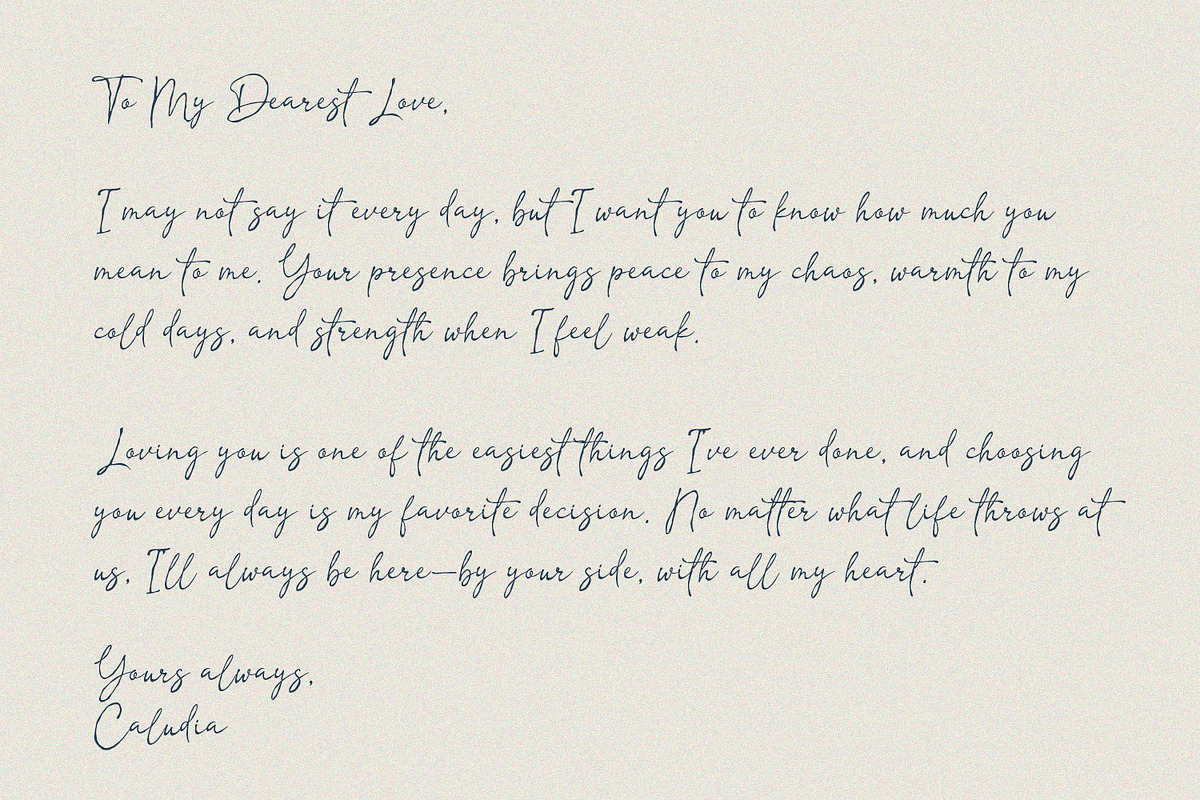 To My Dearest Love,
I may not say it every day, but I want you to know how much you
mean to me. Your presence brings peace to my chaos, warmth to my
cold days, and strength when I feel weak.
Loving you is one of the easiest things I've ever done, and choosing
you every day is my favorite decision. No matter what life throws at
us, I'll always be here—by your side, with all my heart.
Yours always,
Caludia